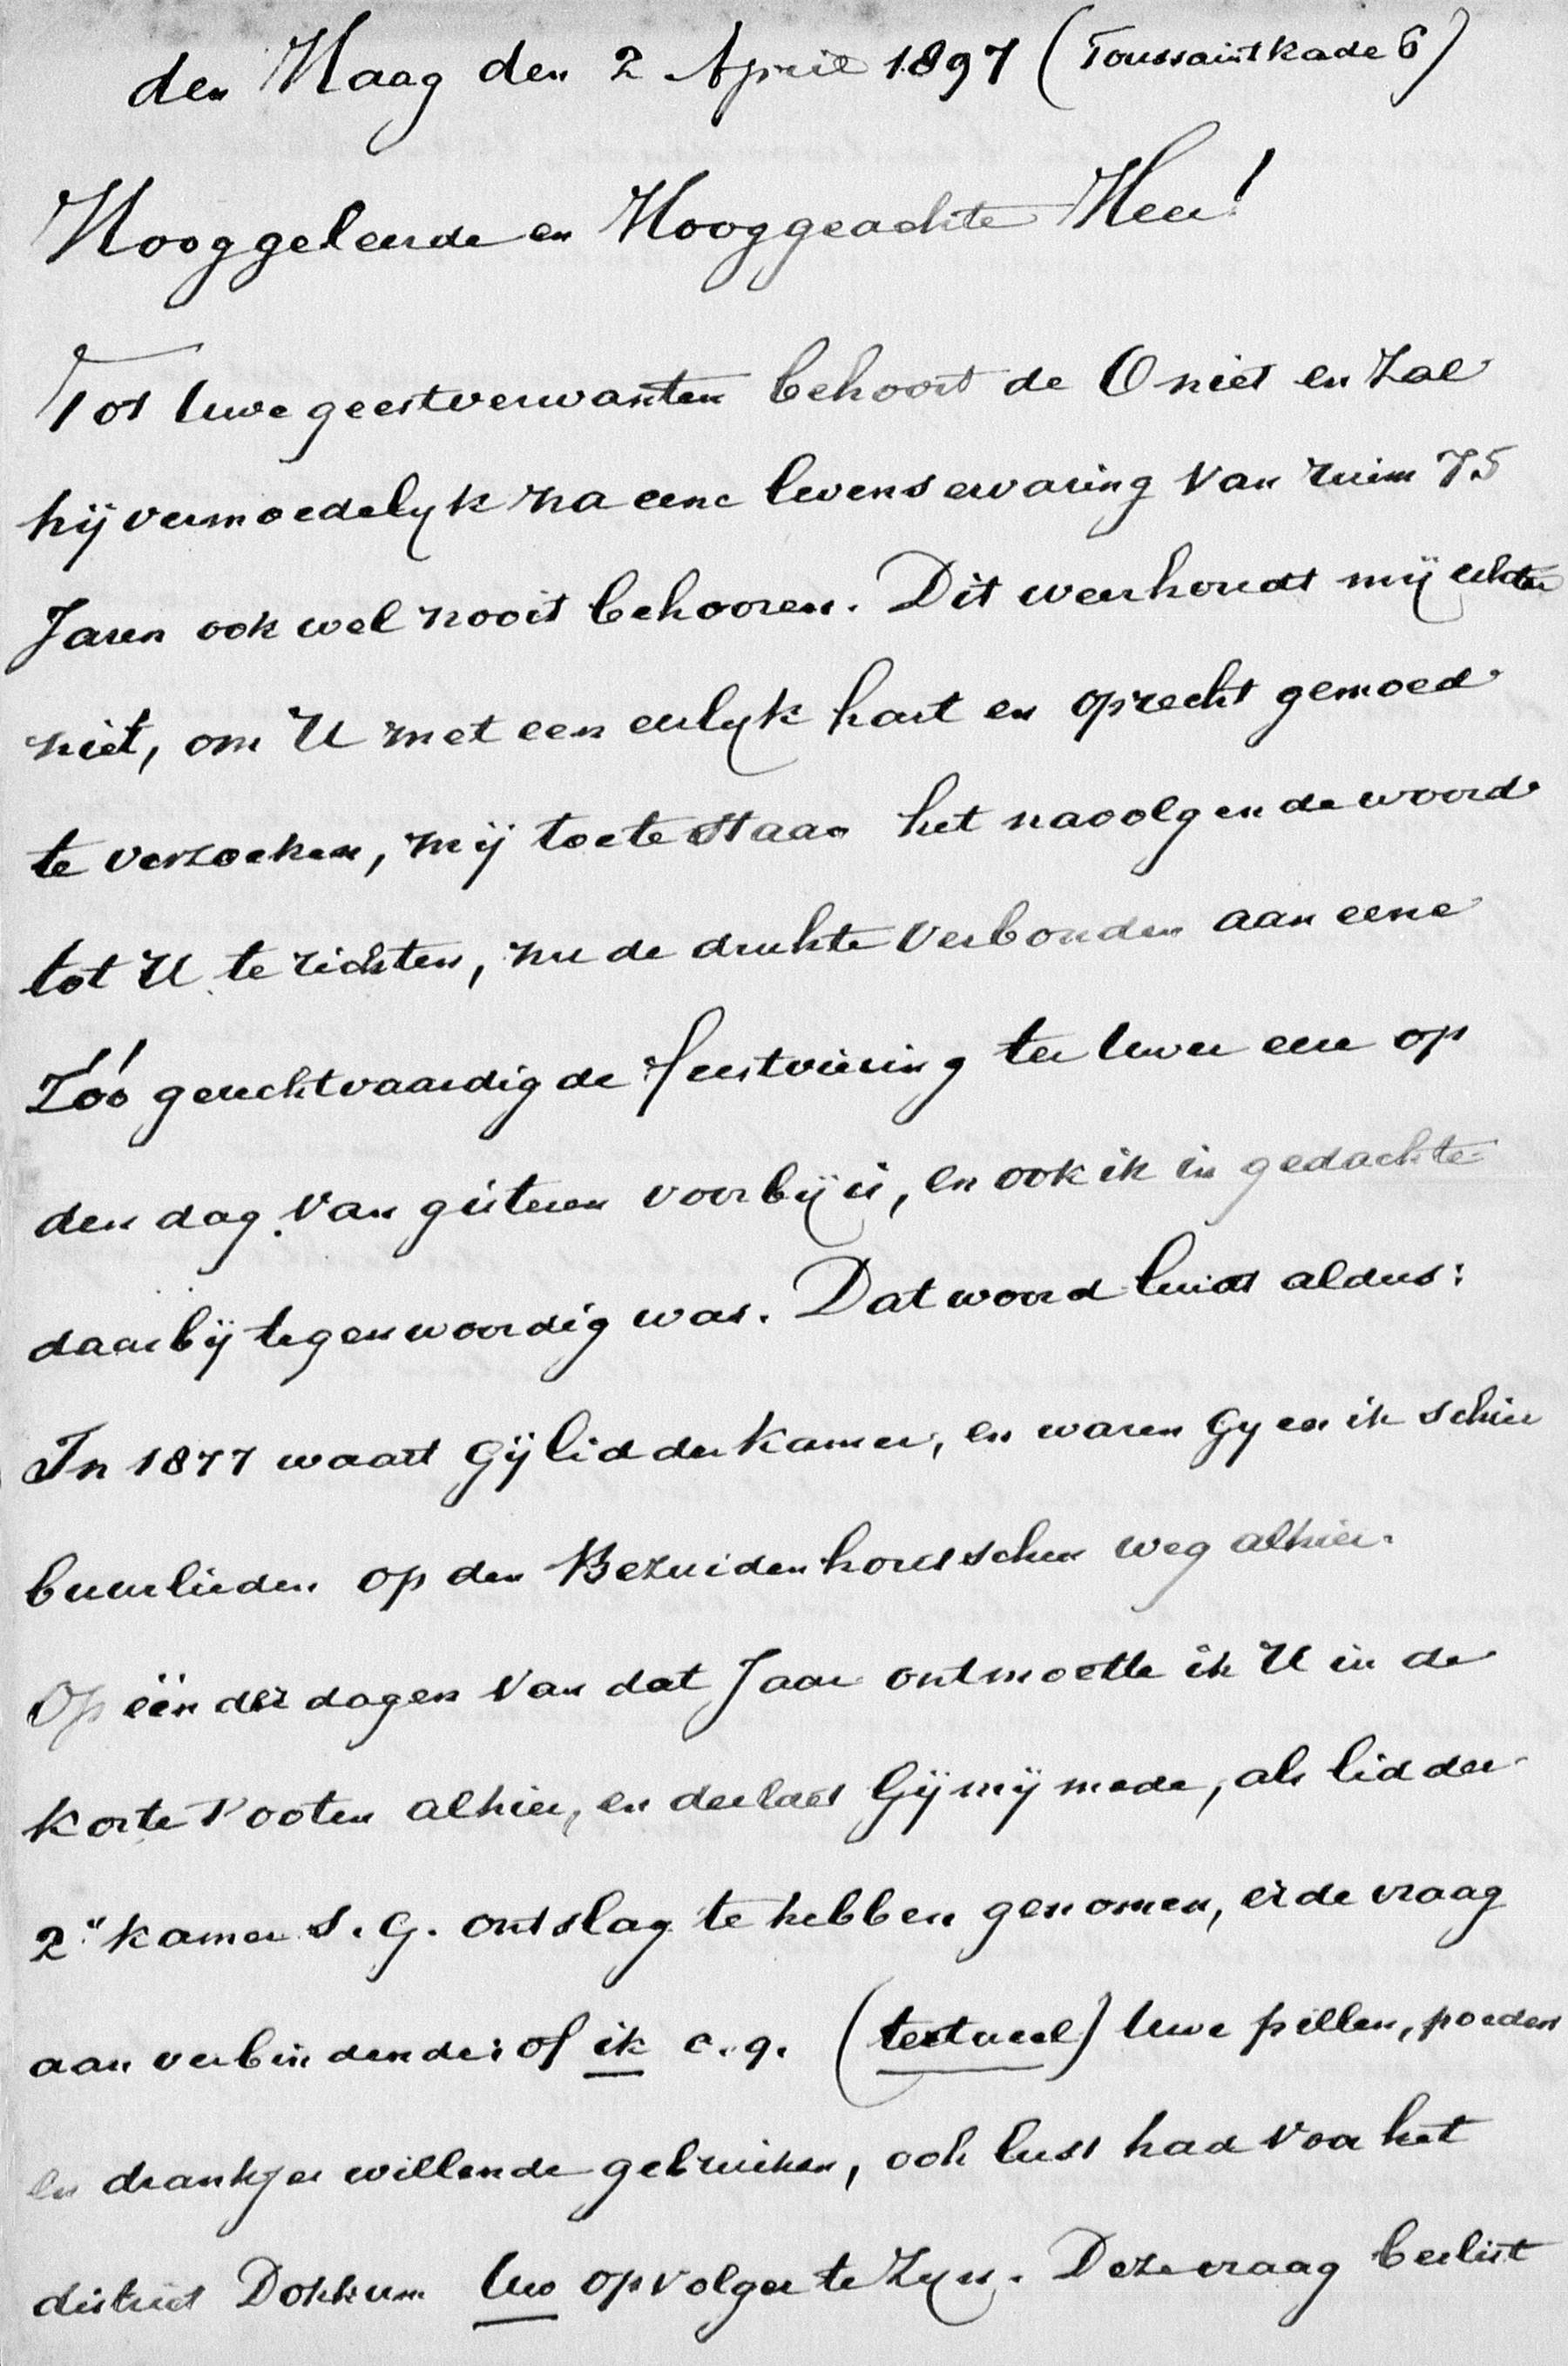 den Haag den 2 April 1897 (Toussaintkade 6)
Hooggeleerde en Hooggeachte Heer!
Tot Uwe geestverwanten behoort de O niet en zal
hij vermoedelyk na eene levenservaring van ruim 75
Jaren ook wel nooit behooren. Dit weerhoudt mij echter
niet, om U met een eerlyk hart en oprecht gemoed
te verzoeken, mij toe te staan het navolgende woord
tot U te richten, nu de drukte verbonden aan eene
zóó gerechtvaardigde feestviering ter Uwer eere op
den dag van gisteren voorbij is, en ook ik in gedachte
daarbij tegenwoordig was. Dat woord luidt aldus:
In 1877 waart Gij lid der Kamer, en waren Gy en ik schier
buurlieden op den Bezuidenhoutschen weg alhier.
Op één der dagen van dat Jaar ontmoette ik U in de
Korte Pooten alhier, en deeldet Gij mij mede, als lid der
2e Kamer S. G. ontslag te hebben genomen, er de vraag
aan verbindende: of ik c. q. (textueel) Uwe pillen, poeders
en drankjes willende gebruiken, ook lust had voor het
district Dokkum Uw opvolger te zyn. Deze vraag berust